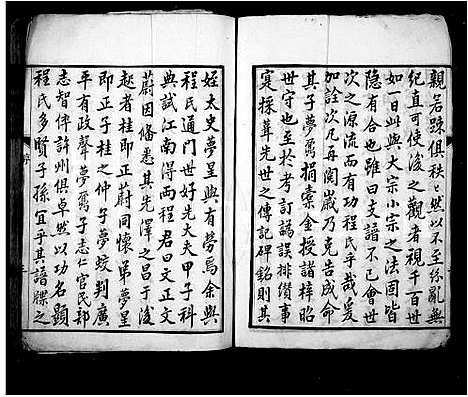 親若疎俱秩秩然以不至紛亂無
紀直可使後之觀者視千百世
如一日此與大宗小宗之法同皆
隱有合也雖曰支譜不已會世
次之源流而有功程氏乎哉爰
加詮次凡再閱歲乃克告成命
其子夢鳳捐橐金授諸梓昭
世守也至於考訂譌誤排纘事
寔採葺先世之傳記碑銘則其
姪太史夢星與有勞焉余與
程氏通門世好先大夫甲子科
典試江南得兩程君曰文正文
蔚因備悉其先澤之昌于後
趂者桂即正蔚同懷弟夢星
即正子桂之仲子夢蛟判廣
平有政聲夢鳳子志仁官民部
志智倅許州俱卓然以功名顯
程氏多賢子孫宜乎其譜牒之